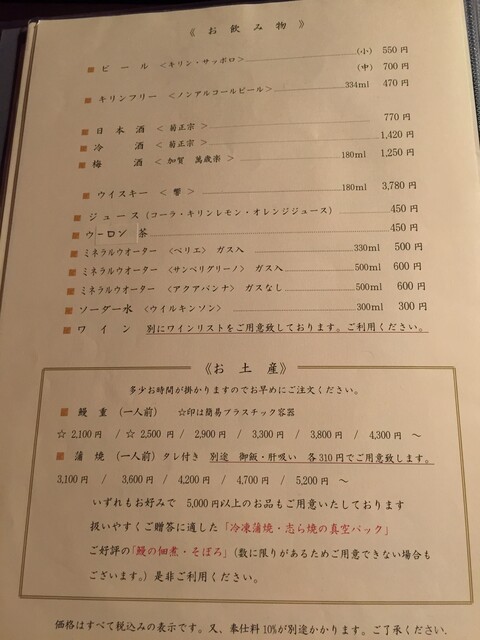 《お飲み物》
■ ビール <キリン・サッポロ> (小) 550円
(中) 700円
■ キリンフリー <ノンアルコールビール> 334ml 470円
■ 日本酒 < 菊正宗 > 770円
■ 冷酒 < 菊正宗 > 1,420円
■ 梅酒 < 加賀 萬歳楽 > 180ml 1,250円
■ ウイスキー < 響 > 180ml 3,780円
■ ジュース (コーラ・キリンレモン・オレンジジュース) 450円
■ ウーロン茶 450円
■ ミネラルウオーター <ペリエ> ガス入 330ml 500円
■ ミネラルウオーター <サンペリグリーノ> ガス入 500ml 600円
■ ミネラルウオーター <アクアパンナ> ガスなし 500ml 600円
■ ソーダー水 <ウイルキンソン> 300ml 300円
■ ワイン 別にワインリストをご用意致しております。ご利用ください。
《お土産》
多少お時間が掛かりますのでお早めにご注文ください。
■ 鰻重 (一人前) ☆印は簡易プラスチック容器
☆ 2,100円 / ☆ 2,500円 / 2,900円 / 3,300円 / 3,800円 / 4,300円 ～
■ 蒲焼 (一人前) タレ付き 別途 御飯・肝吸い 各310円でご用意致します。
3,100円 / 3,600円 / 4,200円 / 4,700円 / 5,200円 ～
いずれもお好みで 5,000円以上のお品もご用意いたしております
扱いやすくご贈答に適した「冷凍蒲焼・志ら焼の真空パック」
ご好評の「鰻の佃煮・そぼろ」(数に限りがあるためご用意できない場合も
ございます。) 是非ご利用ください。
価格はすべて税込みの表示です。又、奉仕料10%が別途かかります。ご了承ください。